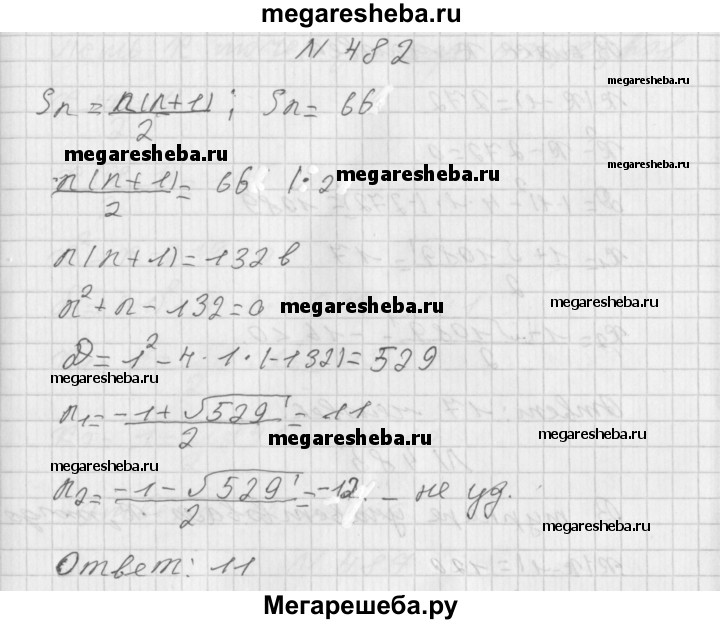 megaresheba.ru
N 482
megaresheba.ru
Sn = n(n+1)/2 ; Sn = 66
megaresheba.ru
megaresheba.ru
n(n+1)/2 = 66 | : 2
megaresheba.ru
n(n+1) = 132
n² + n - 132 = 0
megaresheba.ru
megaresheba.ru
D = 1² - 4 · 1 · (-132) = 529
megaresheba.ru
n₁ = (-1 + √529)/2 = 11
megaresheba.ru
megaresheba.ru
megaresheba.ru
n₂ = (-1 - √529)/2 = -12 - не уд.
megaresheba.ru
Ответ: 11
Мегарешеба.ру